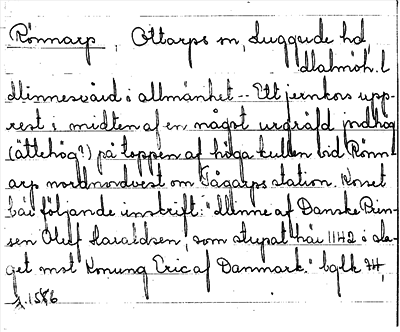 Rönnarp, Ottarps sn, Luggude hd,
Malmöh. l
Minnesvård i allmänhet -- Ett jernkors upp-
rest i midten af en något urgräfd jordhög
(ättehög?) på toppen af höga kullen vid Rönn-
arp nordnordvest om Tågarps station. Korset
bär följande inskrift: "Minne af Danske Prin-
sen Oluf Haraldsen, som stupat här 1142 i sla-
get mot Konung Eric af Danmark."
s. 1586